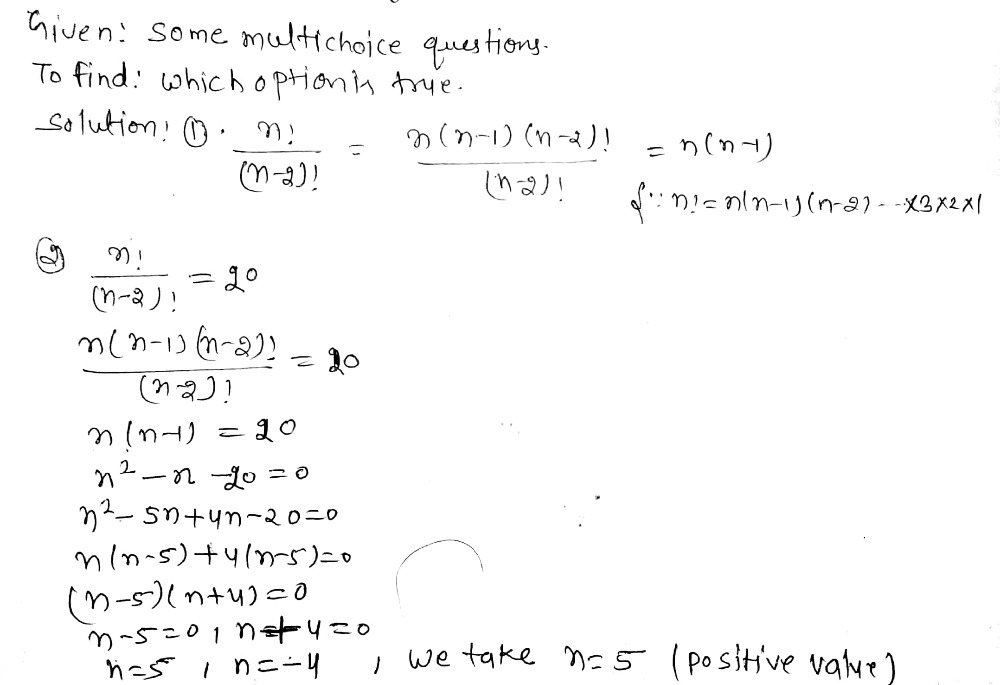 Given: some multichoice questions.
To find: which option is true.
Solution: ① . n! / (n-2)! = n(n-1)(n-2)! / (n-2)! = n(n-1)
{∵ n! = n(n-1)(n-2)---×3×2×1
② n! / (n-2)! = 20
n(n-1)(n-2)! / (n-2)! = 20
n(n-1) = 20
n² - n - 20 = 0
n² - 5n + 4n - 20 = 0
n(n-5) + 4(n-5) = 0
(n-5)(n+4) = 0
n-5 = 0, n+4 = 0
n=5, n=-4, we take n=5 (positive value)